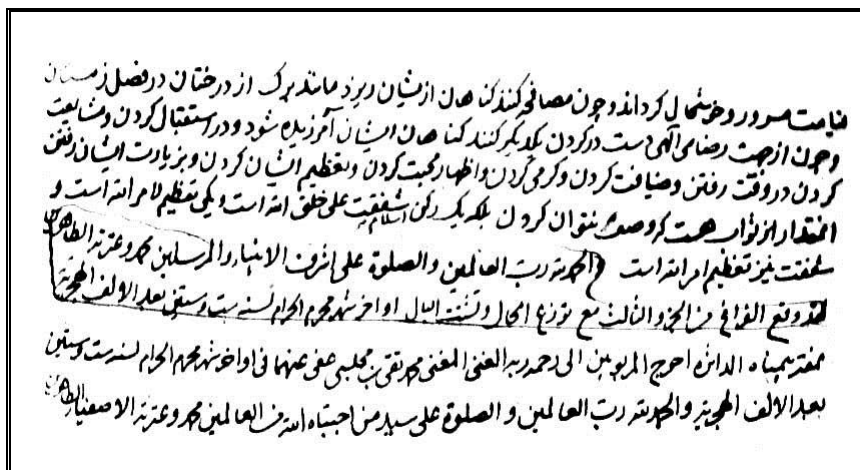 قیامت مسرور و خوشحال کرداند و چون مصافحه کنند کناهان ازیشان ریزد مانند برک از درختان در فصل زمستان
و چون از جهت رضای الهی دست در کردن یکدیکر کنند کناهان ایشان آمرزیده شود و در استقبال کردن و مشایعت
کردن در وقت رفتن و ضیافت کردن و کرمی کردن و اظهار محبت کردن و تعظیم ایشان کردن و بزیارت ایشان رفتن
انمقدار از ثواب هست که وصف نتوان کردن بلکه یک رکن اسلام شفقت علی خلق الله است و یکی تعظیم لامر الله است و
شفقت نیز تعظیم امر الله است الحمد لله رب العالمین و الصلوة علی اشرف الانبیاء و المرسلین محمد و عترته الطاهرین
وقع الفراغ من الجزو الثالث مع توزع الحال و تشتت البال اواخر شهر محرم الحرام لسنه ست و ستین بعد الالف الهجریة
بیمناه الداثره احوج المربوبین الی رحمة ربه الغنی المغنی محمد تقی بن مجلسی عفی عنهما فی اواخر شهر محرم الحرام لسنه ست و ستین
بعد الالف الهجریة و الحمد لله رب العالمین و الصلوة علی سید من اجتباه الله من العالمین محمد و عترته الاصفیاء الطاهرین